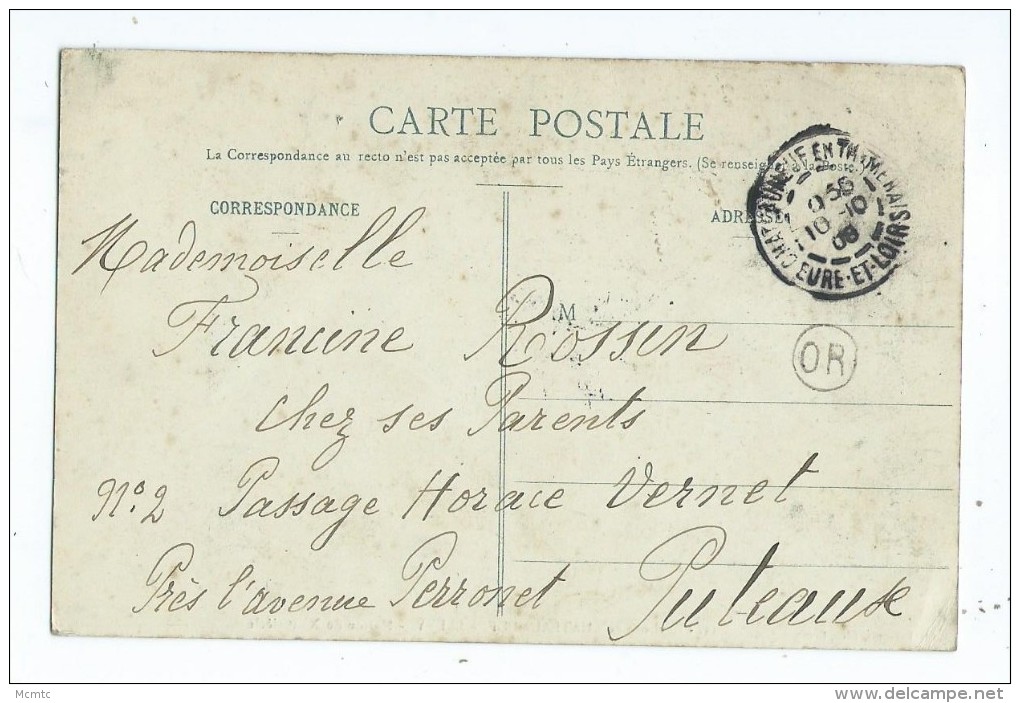 CARTE POSTALE
La Correspondance au recto n'est pas acceptée par tous les Pays Étrangers. (Se renseigner à la Poste.)
CORRESPONDANCE
ADRESSE
CHATEAUNEUF EN THYMERAIS
10 -10
09
EURE-ET-LOIR
Mademoiselle
M
Francine Rossin
OR
chez ses Parents
No. 2 Passage Horace Vernet
Près l'avenue Perronet Puteaux
Mcmtc
www.delcampe.net